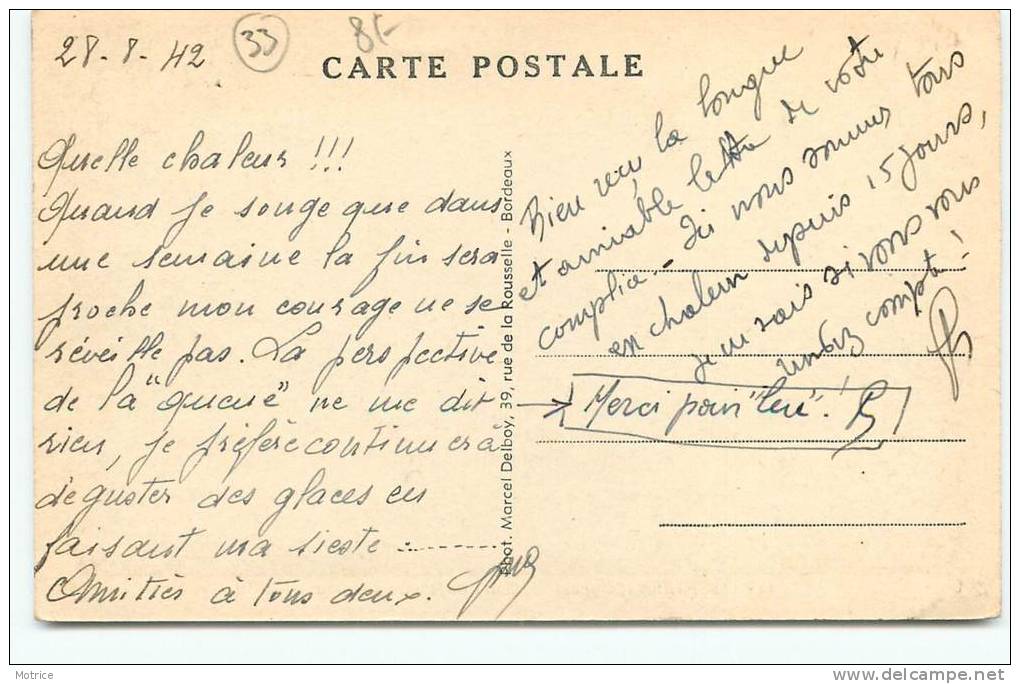 28-8-42
33
8f-
CARTE POSTALE
Quelle chaleur !!!
Quand je songe que dans
une semaine la fin sera
proche mon courage ne se
réveille pas. La perspective
de la "queue" ne me dit
rien, je préfère continuer à
déguster des glaces en
faisant ma sieste
Amitiés à tous deux.
Phot. Marcel Delboy, 39, rue de la Rousselle - Bordeaux
Bien reçu la longue
et aimable lettre de votre
complice - Ici nous sommes tous
en chaleur depuis 15 jours,
je ne sais si vous vous
compte!
Merci pour
Motrice
delcampe.net